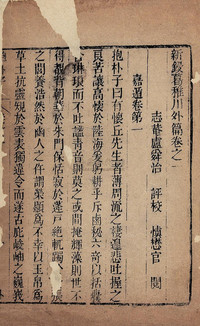 新鋟葛稚川外篇卷之一
志菴盧舜治 評校 懷懋官 閱
嘉遁卷第一
抱朴子曰有懷氷先生者薄周流之棲遑悲吐握之
苦讓高懷於陸海爰躬耕乎斥鹵秘六奇以括囊
琳琅而不吐謐清音則莫之或聞掩輝藻則世不
得覩背朝華於朱門保恬寂於蓬戶絕軌躅
之閭養浩然於幽人之仵謂榮顯為不幸以玉帛為
草土抗靈規於雲表獨違今而遂古庇峻岫之巍峩